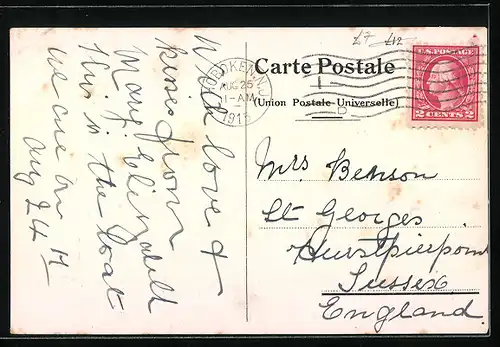 With love &
kisses from
Mary Elizabeth
this is the boat
we are on
Aug 24th
HOBOKEN, N.J.
AUG 25
1-AM
1915
Carte Postale
(Union Postale Universelle)
D
£7 £12
U.S. POSTAGE
2 CENTS 2
Mrs Benson
St Georges
Hurstpierpoint
Sussex
England